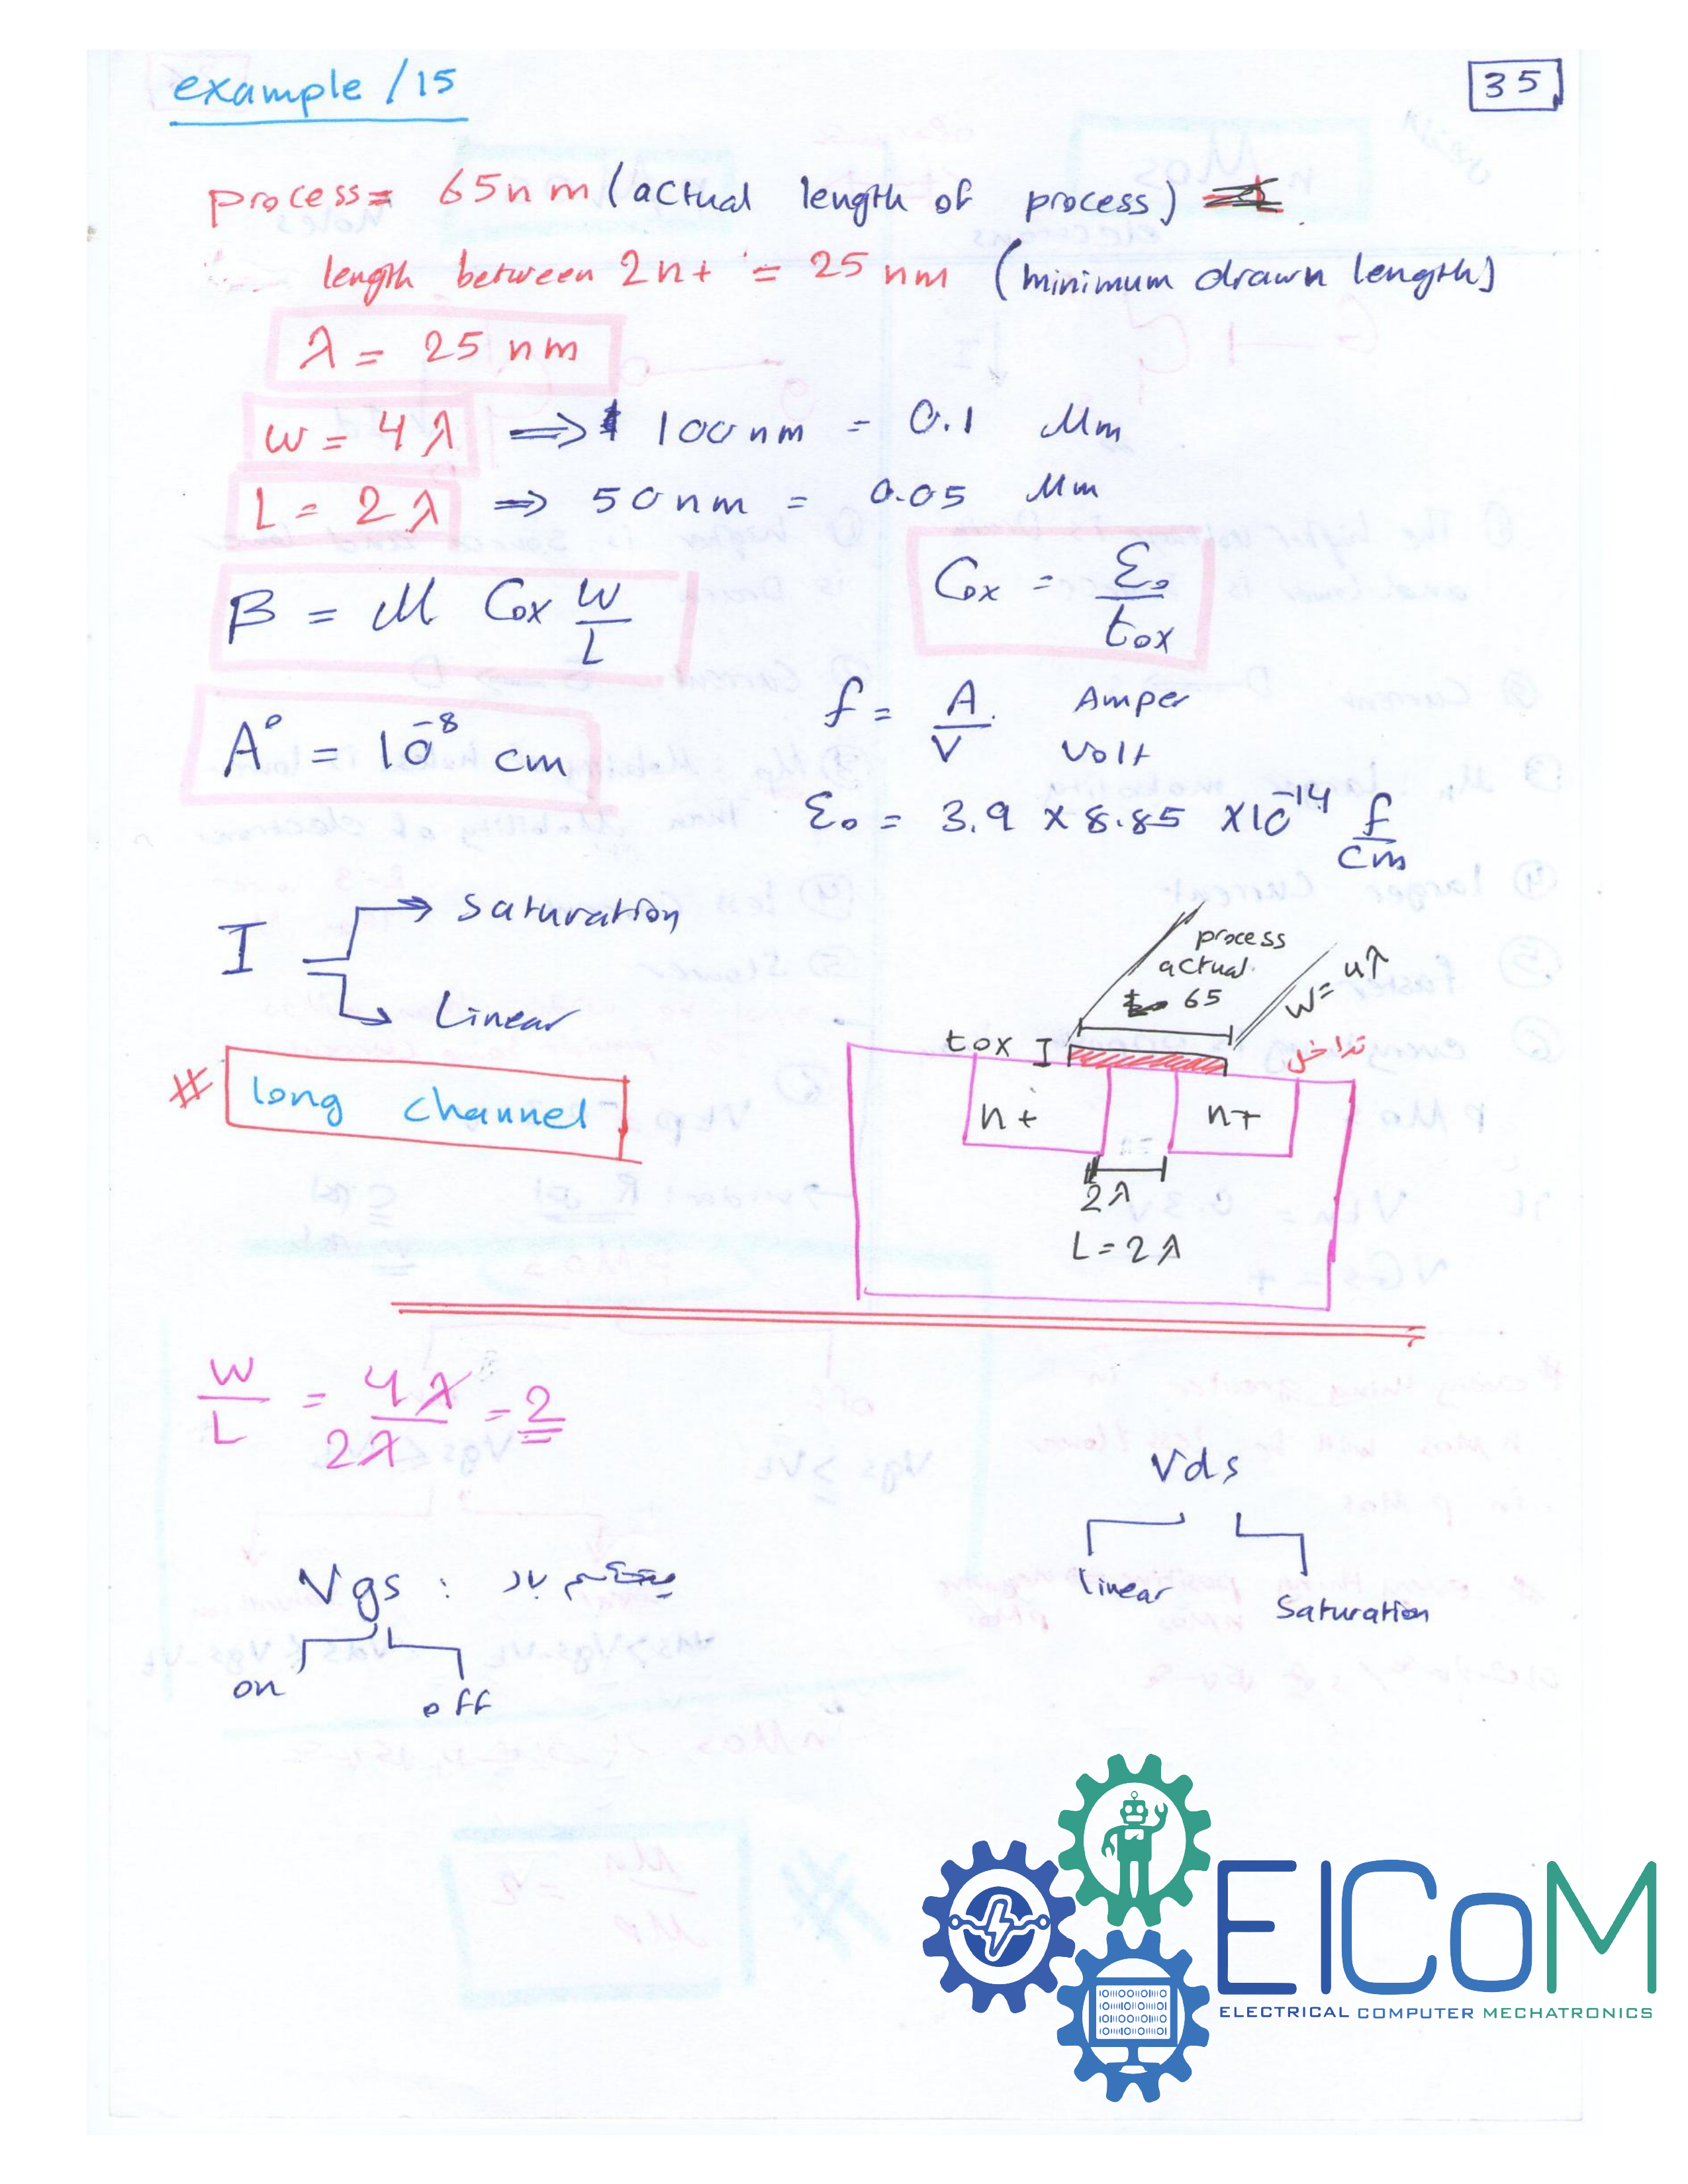 example / 15
35
process = 65 nm (actual length of process)
length between 2n+ = 25 nm (minimum drawn length)
λ = 25 nm
w = 4λ ⟹ 100 nm = 0.1 Mm
L = 2λ ⟹ 50 nm = 0.05 Mm
β = M Cox W/L
Cox = ε₀/tox
A° = 10⁻⁸ cm
f = A/V Amper Volt
ε₀ = 3.9 × 8.85 × 10⁻¹⁴ f/cm
I
saturation
Linear
# long channel
process
actual
65
w=
tox
تداخل
n+
n+
2λ
L = 2λ
W/L = 4λ/2λ = 2
Vds
linear
Saturation
Vgs :
on
off
EICoM
ELECTRICAL COMPUTER MECHATRONICS